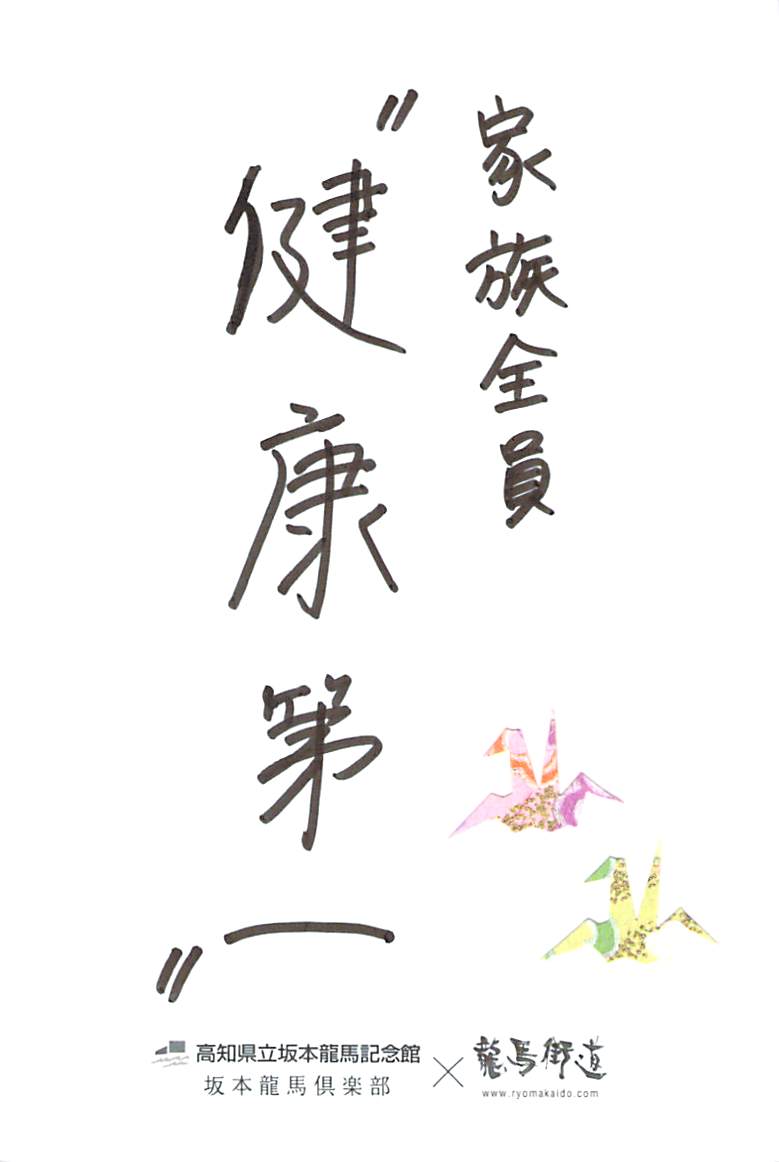 家族全員
〃健康第一〃
高知県立坂本龍馬記念館
坂本龍馬倶楽部
×
龍馬街道
www.ryomakaido.com